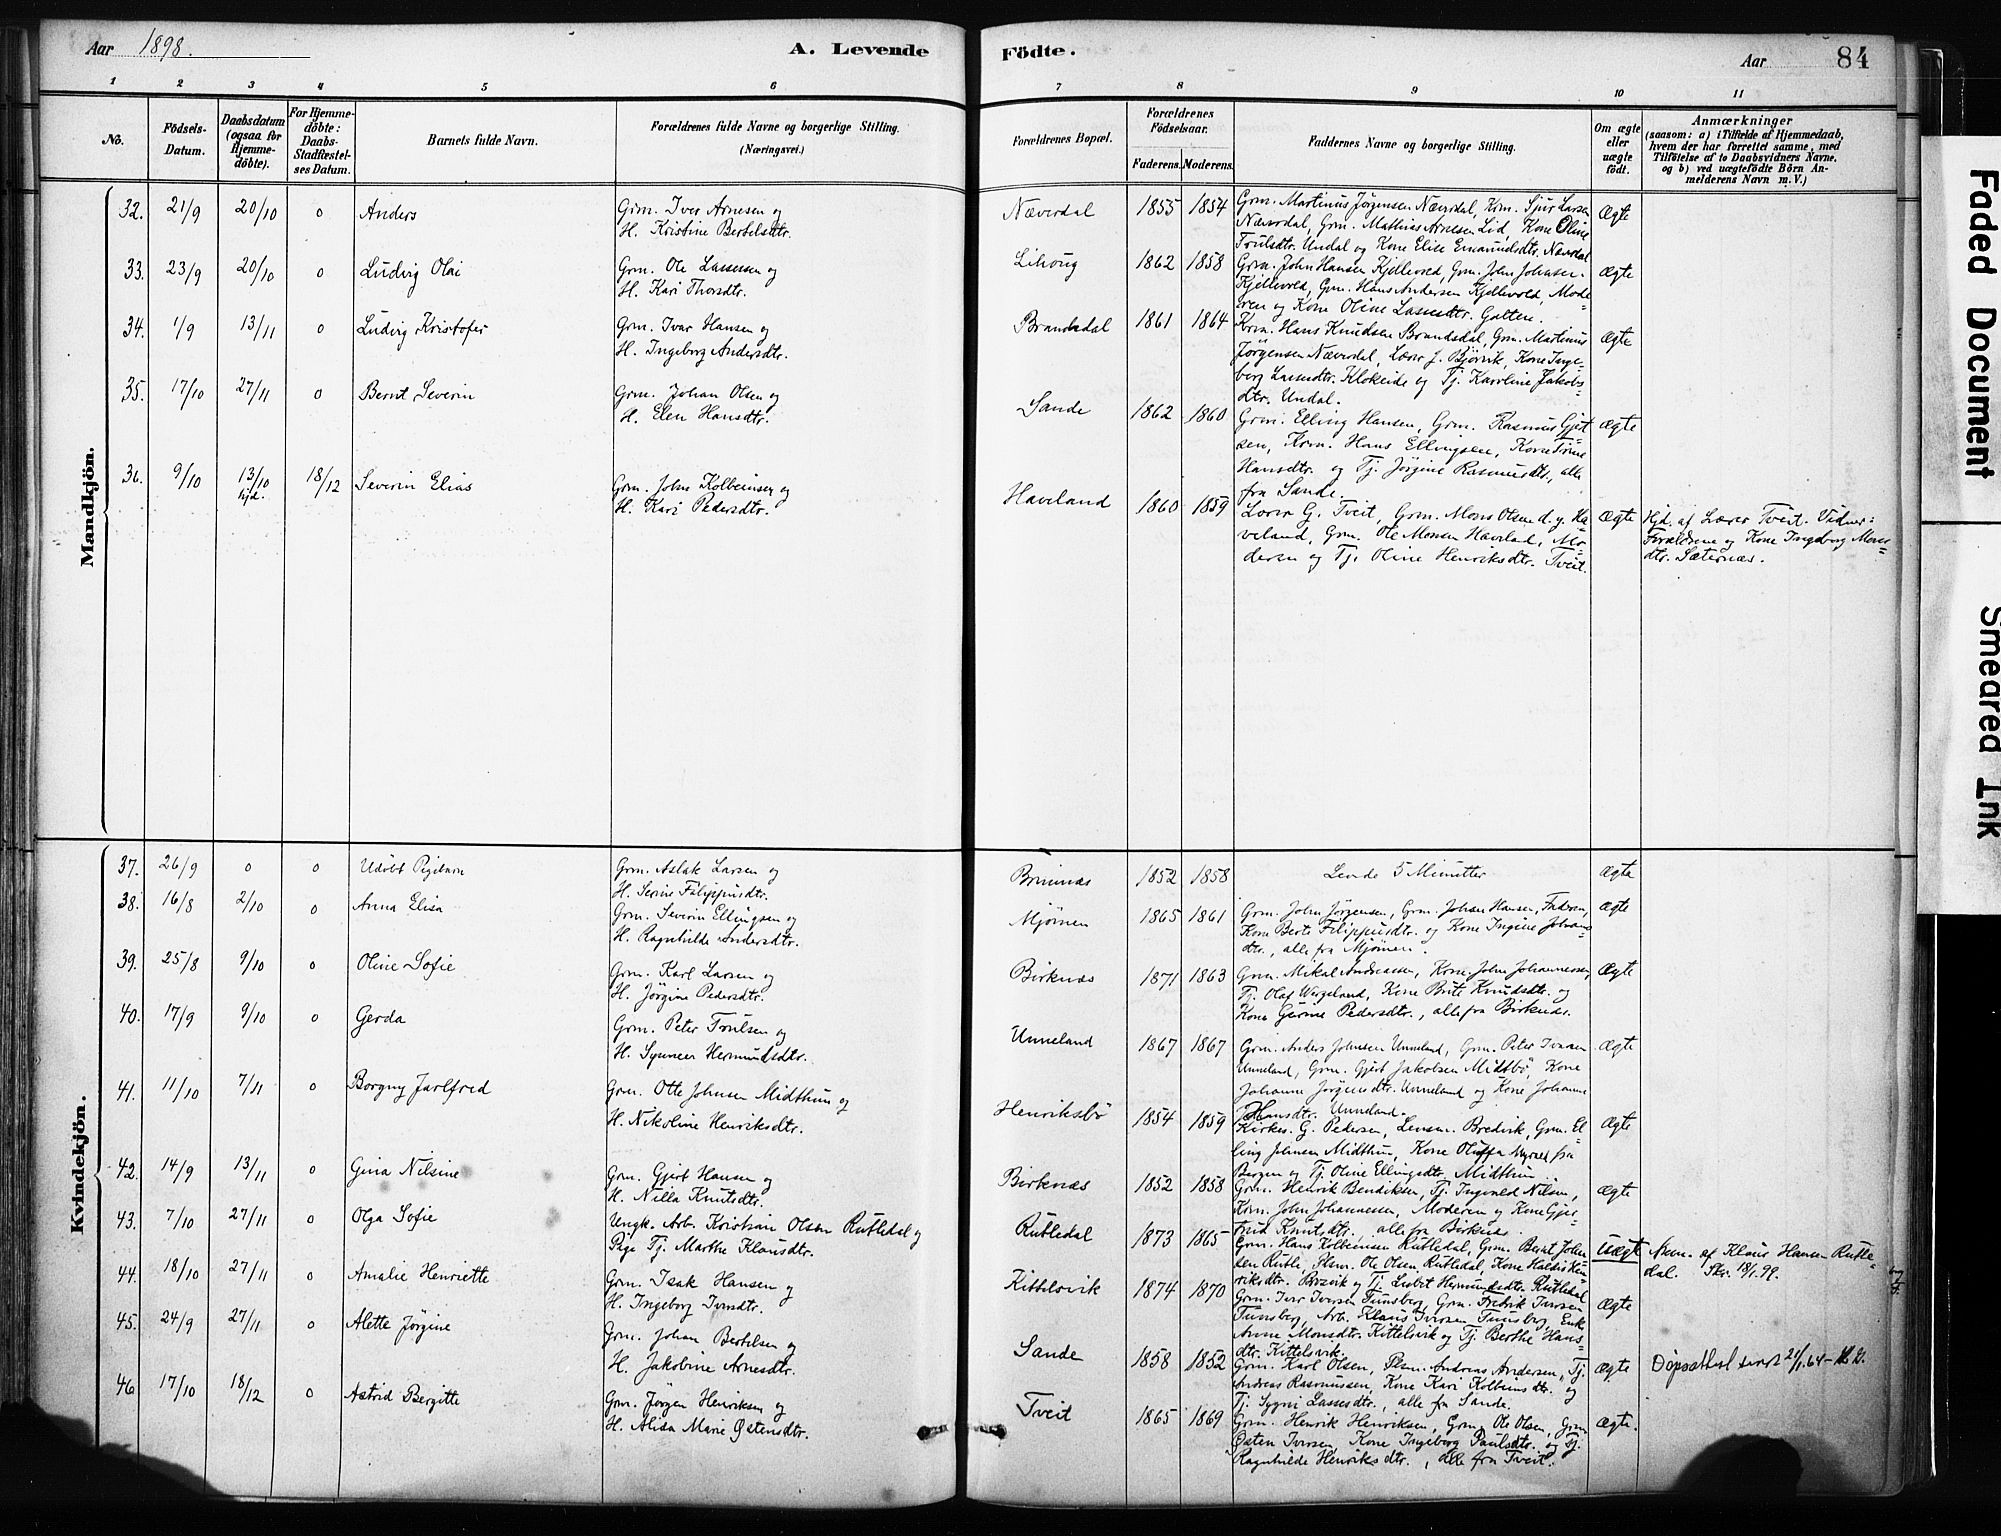 Aar 1898.
A. Levende Födte.
Aar 84
1 2 3 4 5 6 7 8 9 10 11
No.
Födsels-Datum.
Daabsdatum (ogsaa for Hjemmedöbte).
For Hjemmedöbte: Daabs-Stadfæstelses Datum.
Barnets fulde Navn.
Forældrenes fulde Navne og borgerlige Stilling.
(Næringsvei.)
Forældrenes Bopæl.
Forældrenes Födselsaar.
Faderens. Moderens.
Faddernes Navne og borgerlige Stilling.
Om ægte eller uægte födt.
Anmærkninger
(saasom: a) i Tilfælde af Hjemmedaab,
hvem der har forrettet samme, med
Tilföielse af to Daabsvidners Navne.
og b) ved uægtefödte Börn Anmelderens Navn m. V.)
Mandkjön.
32. 21/9 20/10 o Anders Grm. Iver Arnesen og
H. Kristine Bertelsdtr.
Næverdal 1855 1854 Grm. Martinus Jørgensen Næverdal, Krm. Sjur Larsen
Næverdal, Grm. Mathias Arnesen Lid, Kone Oline
Trulsdtr. Undal og Kone Elise Emanuelsdtr. Næverdal
Ægte
33. 23/9 20/10 o Ludvig Olai Grm. Ole Lassesen og
H. Kari Thorsdtr.
Lihoug 1862 1858 Grm. John Hansen Kjellevold, Grm. John Johnsen
Kjellevold, Grm. Hans Andersen Kjellevold, Mode-
ren og Kone Oline Lassesdtr. Gatten.
Ægte
34. 1/9 13/11 o Ludvig Kristofer Grm. Ivar Hansen og
H. Ingeborg Andersdtr.
Brandsdal 1861 1864 Krm. Hans Knudsen Brandsdal, Grm. Martinus
Jørgensen Næverdal, Lærer J. Bjørvik, Kone Inge-
borg Lassesdtr. Klokeide og Tj. Karoline Jakobs
dtr. Undal.
Ægte
35. 17/10 27/11 o Bernt Severin Grm. Johan Olsen og
H. Elen Hansdtr.
Sande 1862 1860 Grm. Elling Hansen, Grm. Rasmus Gjert
sen, Krm. Hans Ellingsen, Kone Trine
Hansdtr. og Tj. Jørgine Rasmusdtr., alle
fra Sande.
Ægte
36. 9/10 13/10 hjd. 18/12 Severin Elias Grm. John Kolbeinsen og
H. Kari Pedersdtr.
Haveland 1860 1859 Lærer G. Tveit, Grm. Mons Olsen d. y. Ha-
veland, Grm. Ole Monsen Haveland, Mo-
deren og Tj. Oline Henriksdtr. Tveit.
Ægte Hjd. af Lærer Tveit. Vidner:
Forældrene og Kone Ingeborg Mons-
dtr. Sæternæs.
Kvindekjön.
37. 26/9 o o Udøbt Pigebarn Grm. Aslak Larsen og
H. Serine Filippusdtr.
Brinnæs 1852 1858 Levde 5 Minutter Ægte
38. 16/8 2/10 o Anna Elisa Grm. Severin Ellingsen og
H. Ragnhilde Andersdtr.
Mjømen 1865 1861 Grm. John Jørgensen, Grm. Johan Hansen, Faderen,
Kone Berte Filippusdtr. og Kone Ingine Johans-
dtr., alle fra Mjømen.
Ægte
39. 25/8 9/10 o Oline Sofie Grm. Karl Larsen og
H. Jørgine Pedersdtr.
Birknæs 1871 1863 Grm. Mikal Andreassen, Kone John Johannessen,
Tj. Olaf Wergeland, Kone Brite Knudsdtr. og
Kone Gurine Pedersdtr., alle fra Birknæs.
Ægte
40. 17/9 9/10 o Gerda Grm. Peter Trulsen og
H. Synneer Hermundsdtr.
Unneland 1867 1867 Grm. Anders Johnsen Unneland, Grm. Peter Iversen
Unneland, Grm. Gjert Jakobsen Midtbö, Kone
Johanne Jørgensdtr. Unneland og Kone Johanne
Hansdtr. Unneland.
Ægte
41. 11/10 7/11 o Borgny Jarlfred Grm. Otte Johnsen Midthun og
H. Nikoline Henriksdtr.
Henriksbö 1854 1859 Kirkes. G. Pedersen, Lensm. Bredvik, Grm. El-
ling Johnsen Midthun, Kone Oluffa Myrvel fra
Bergen og Tj. Oline Ellingsdtr. Midthun.
Ægte
42. 14/9 13/11 o Gina Nilsine Grm. Gjert Hansen og
H. Nilla Knutsdtr.
Birknæs 1852 1858 Grm. Henrik Bendiksen, Tj. Ingvald Nilsen,
Krm. John Johannessen, Moderen og Kone Gjer-
trud Knutsdtr., alle fra Birknæs.
Ægte
43. 7/10 27/11 o Olga Sofie Ungk. Arb. Kristian Olsen Rutledal og
Pige Tj. Marthe Klausdtr.
Rutledal 1873 1865 Grm. Hans Kolbeinsen Rutledal, Grm. Bernt John-
sen Rutle, Plsm. Ole Olsen Rutledal, Kone Haldis Hen-
riksdtr. Brosvik og Tj. Lisbet Hermundsdtr. Rutledal
uægt Anm. af Klaus Hansen Rutle-
dal. Skr. 18/1.99.
44. 18/10 27/11 o Amalie Henriette Grm. Isak Hansen og
H. Ingeborg Iversdtr.
Kittelsvik 1874 1870 Grm. Iver Iversen Tunsberg, Grm. Fredrik Iversen
Tunsberg, Arb. Klaus Iversen Tunsberg, Enke
Anne Monsdtr. Kittelsvik og Tj. Berthe Hans-
dtr. Kittelsvik.
Ægte
45. 24/9 27/11 o Alette Jørgine Grm. Johan Bertelsen og
H. Jakobine Arnesdtr.
Sande 1858 1852 Grm. Karl Olsen, Plsm. Andreas Andersen, Tj.
Andreas Rasmussen, Kone Kari Kolbeinsdtr. og
Tj. Sygni Lassesdtr., alle fra Sande.
Ægte Døpsattest sendt 21/1.64
46. 17/10 18/12 o Astrid Bergitte Grm. Jørgen Henriksen og
H. Alisa Marie Østensdtr.
Tveit 1865 1869 Grm. Henrik Henriksen, Grm. Ole Olsen, Grm
Østen Iversen, Kone Ingeborg Paulsdtr. og Tj.
Ragnhilde Henriksdtr., alle fra Tveit.
Ægte.
Faded Document
Smeared Ink